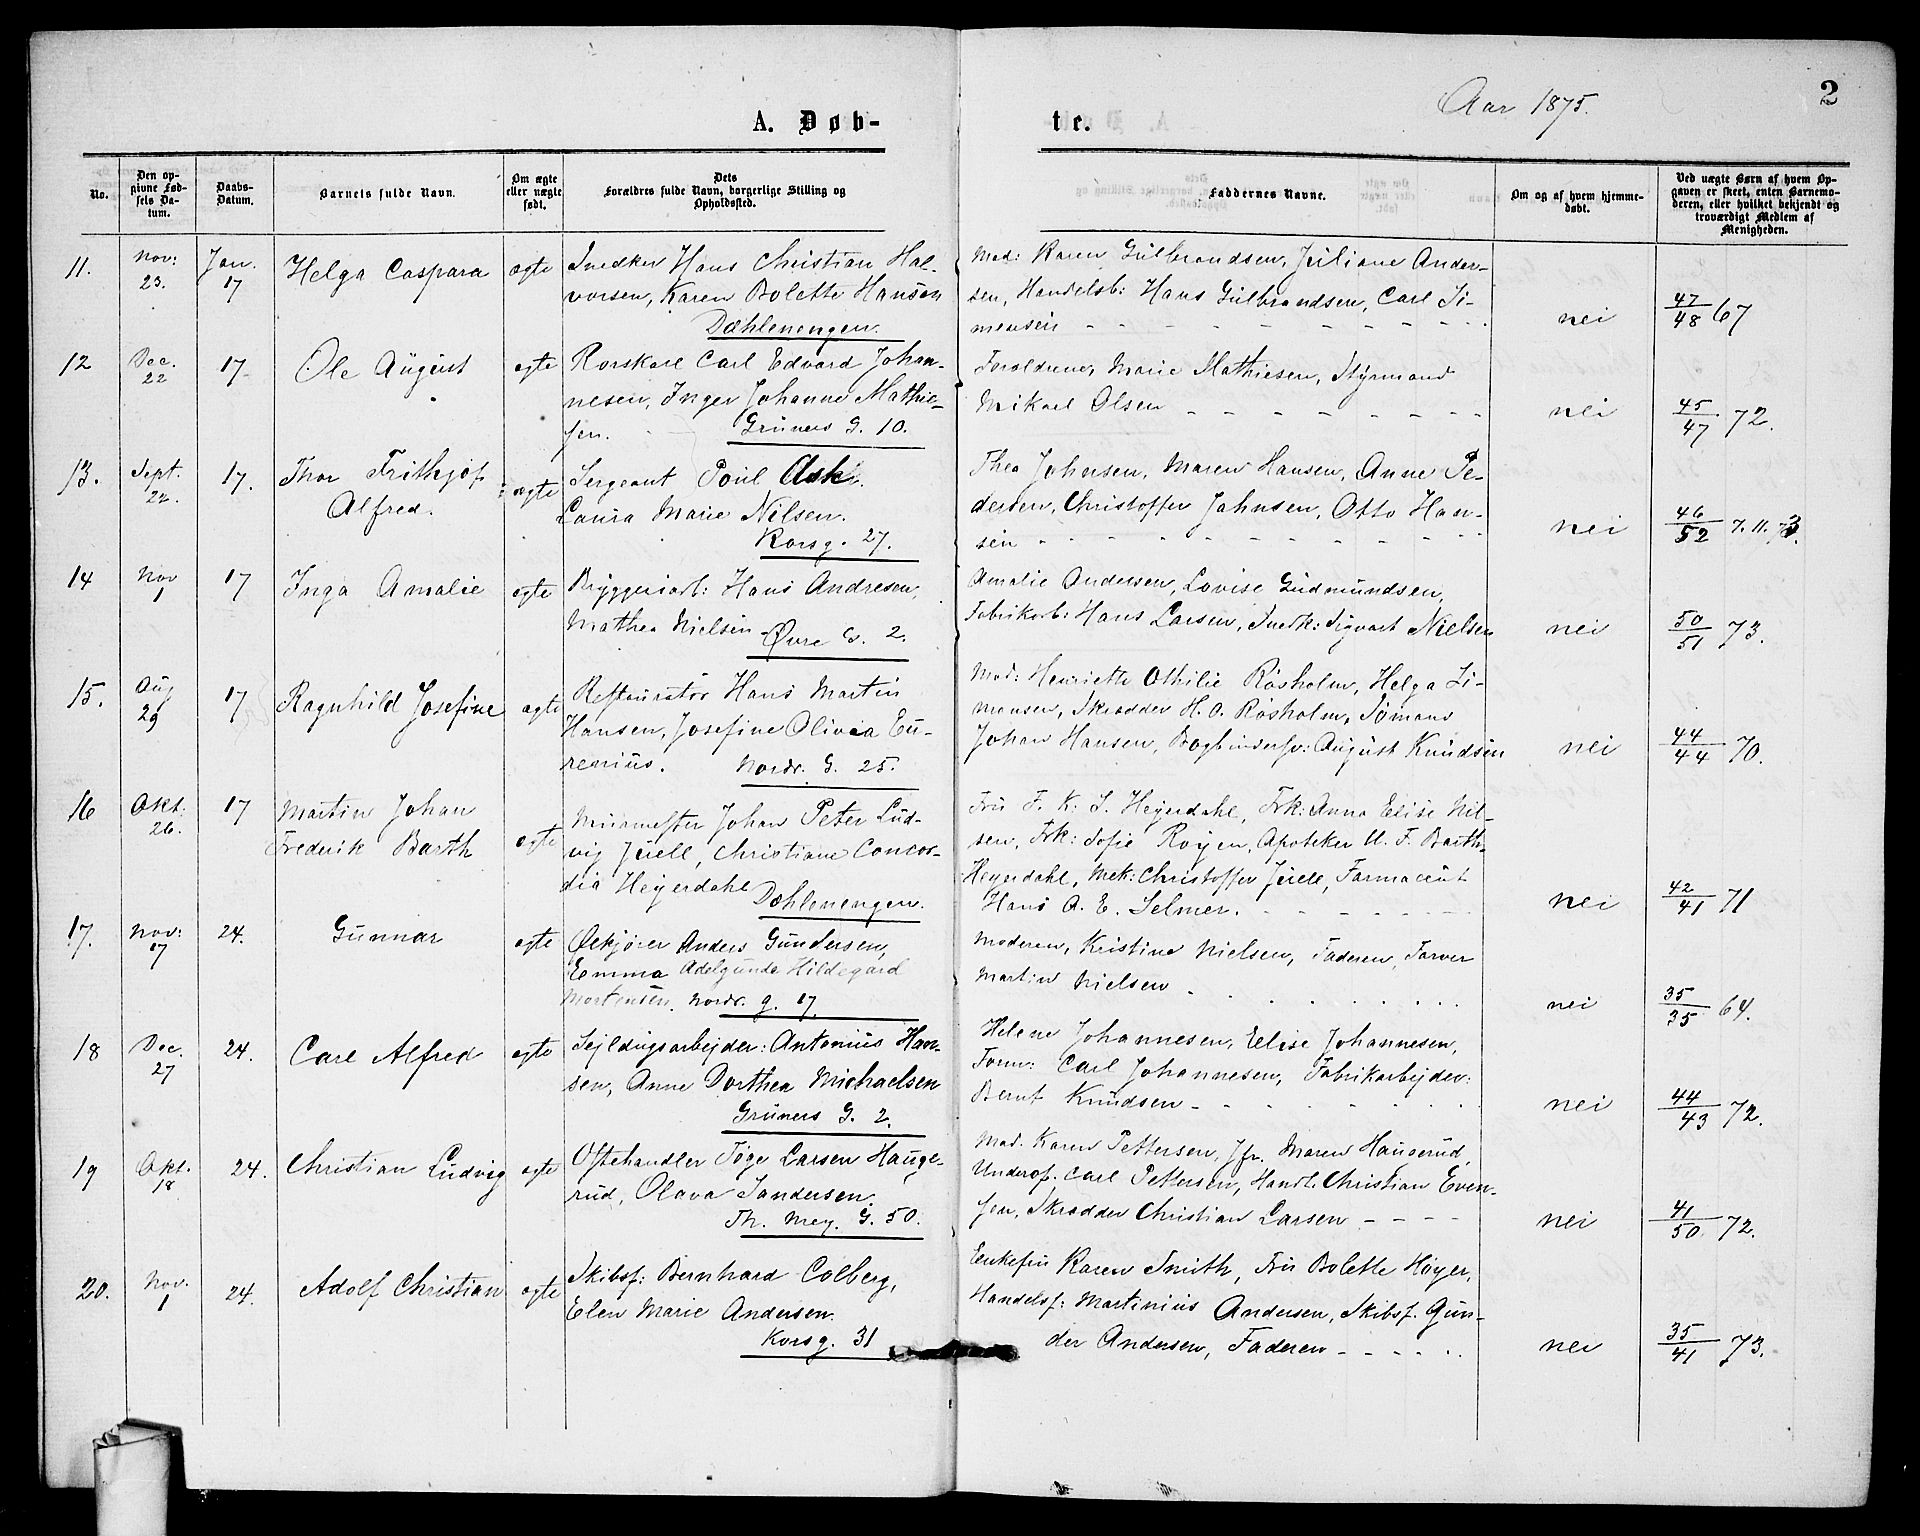 Aar 1875.
2
A. Døb-
te.
No.
Den op-
givne Fød-
sels Da-
tum.
Daabs-
Datum.
Barnets fulde Navn.
Om ægte
eller uægte
født.
Dets
Forældres fulde Navn, borgerlige Stilling og
Opholdssted.
Faddernes Navne.
Om og af hvem hjemme-
døbt.
Ved uægte Børn af hvem Op-
gaven er skeet, enten Barnemo-
deren, eller hvilket bekjendt og
troværdigt Medlem af
Menigheden.
11.
Nov:
23.
Jan.
17
Helga Caspara
ægte
Snedker Hans Christian Hal-
vorsen, Karen Bolette Hansen
Dæhlenengen.
Mad: Karen Gulbrandsen, Juliane Ander-
sen, Handelsb: Hans Gulbrandsen, Carl Si-
mensen
nei
47/48 67
12
Dec.
22
17.
Ole August
ægte
Rorskarl Carl Edvard Johan-
nesen, Inger Johanne Mathie-
sen.
Grüners G. 10.
Forældrene, Marie Mathiesen, Styrmand
Mikael Olsen
nei
45/47 72.
13.
Sept.
22.
17.
Thor Frithjof
Alfred.
ægte
Sergeant Poul Ask.
Laura Marie Nilsen.
Korsg. 27.
Thea Johnsen, Maren Hansen, Anne Pe-
dersen, Christoffer Johnsen, Otto Han-
sen
nei
46/52 7.11.73.
14
Nov
1
17
Inga Amalie
ægte
Bryggeriarb: Hans Andresen,
Mathea Nielsen
Øvre G. 2.
Amalie Andersen, Lovise Gudmundsen,
Fabrikarb: Hans Larsen, Snedk: Sigvart Nielsen
nei
50/51 73.
15.
Aug
29
17
Ragnhild Josefine
ægte
Restauratør Hans Martin
Hansen, Josefine Olivia Eu-
renius.
Nordr. G. 25.
Mad: Henriette Othilie Røsholm, Helga Si-
mensen, Skrædder H. O. Røsholm, Sømand
Johan Hansen, Bogbindersv: August Knudsen
nei
44/44 70.
16
Okt:
26.
17
Martin Johan
Frederik Barth
ægte
Murmester Johan Peter Lud-
vig Juell, Christiane Concor-
dia Heyerdahl
Dæhlenengen.
Fru F. K. S. Heyerdahl, Frk: Anna Elise Nil-
sen, Frk: Sofie Røyen, Apoteker U. F. Barth-
Heyerdahl, Mek: Christoffer Juell, Farmaceut
Hans A. E. Selmer.
nei
42/41 71
17.
Nov:
17
24.
Gunnar
ægte
Ølkjører Anders Gundersen,
Emma Adelgunde Hildegard
Mortensen. Nordr. g. 17.
Moderen, Kristine Nielsen, Faderen, Farver
Martin Nielsen
nei
35/35 64.
18
Dec.
27
24.
Carl Alfred
ægte
Sejldugsarbejder: Antonius Han-
sen, Anne Dorthea Michaelsen
Grüners G. 2.
Helene Johannesen, Elise Johannesen,
Form: Carl Johannesen, Fabrikarbejder:
Bernt Knudsen
nei
44/43 72.
19
Okt.
18
24.
Christian Ludvig
ægte
Ostehandler Tøge Larsen Hauge-
rud, Olava Sandersen.
Th. Mey. G. 50.
Mad. Karen Pettersen, Jfr. Maren Haugerud,
Underof. Carl Pettersen, Handl. Christian Even-
sen, Skrædder Christian Larsen
nei
41/50 72.
20.
Nov.
1
24.
Adolf Christian
ægte
Skibsf: Bernhard Colberg,
Elen Marie Andersen.
Korsg. 31
Enkefru Karen Smith, Fru Bolette Høyer,
Handelsf: Martinius Andersen, Skibsf. Gun-
der Andersen, Faderen
nei
35/41 73.